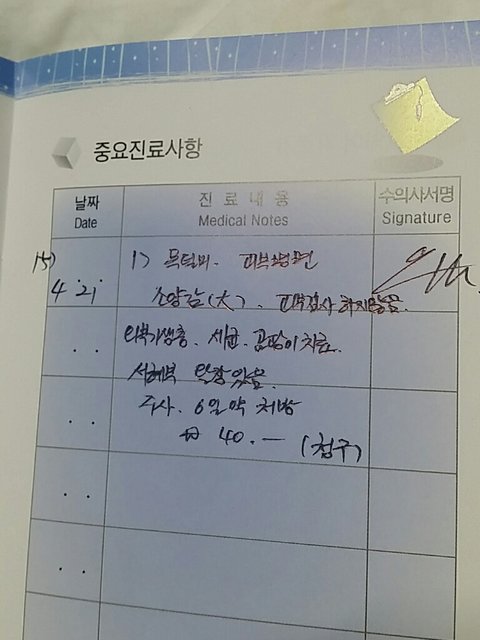 중요진료사항
날짜 진료내용 수의사서명
Date Medical Notes Signature
15)
1) 목덜미. 피부병변
4. 21. 소양감(大). 피부검사 하지않음.
외부기생충. 세균. 곰팡이 치료.
있음.
주사. 6일약 처방
₩ 40.— (청구)